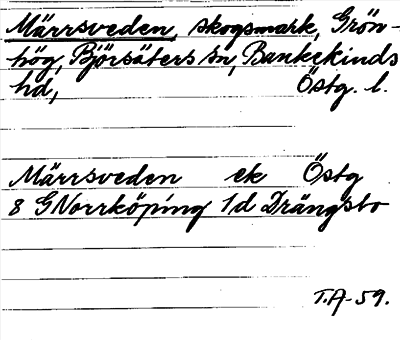 Märrsveden, skogsmark, Grön-
hög, Björsäters sn, Bankekinds
hd, Östg. l.
Märrsveden ek Östg
8 GNorrköping 1d Drängsbo
T.A-59.